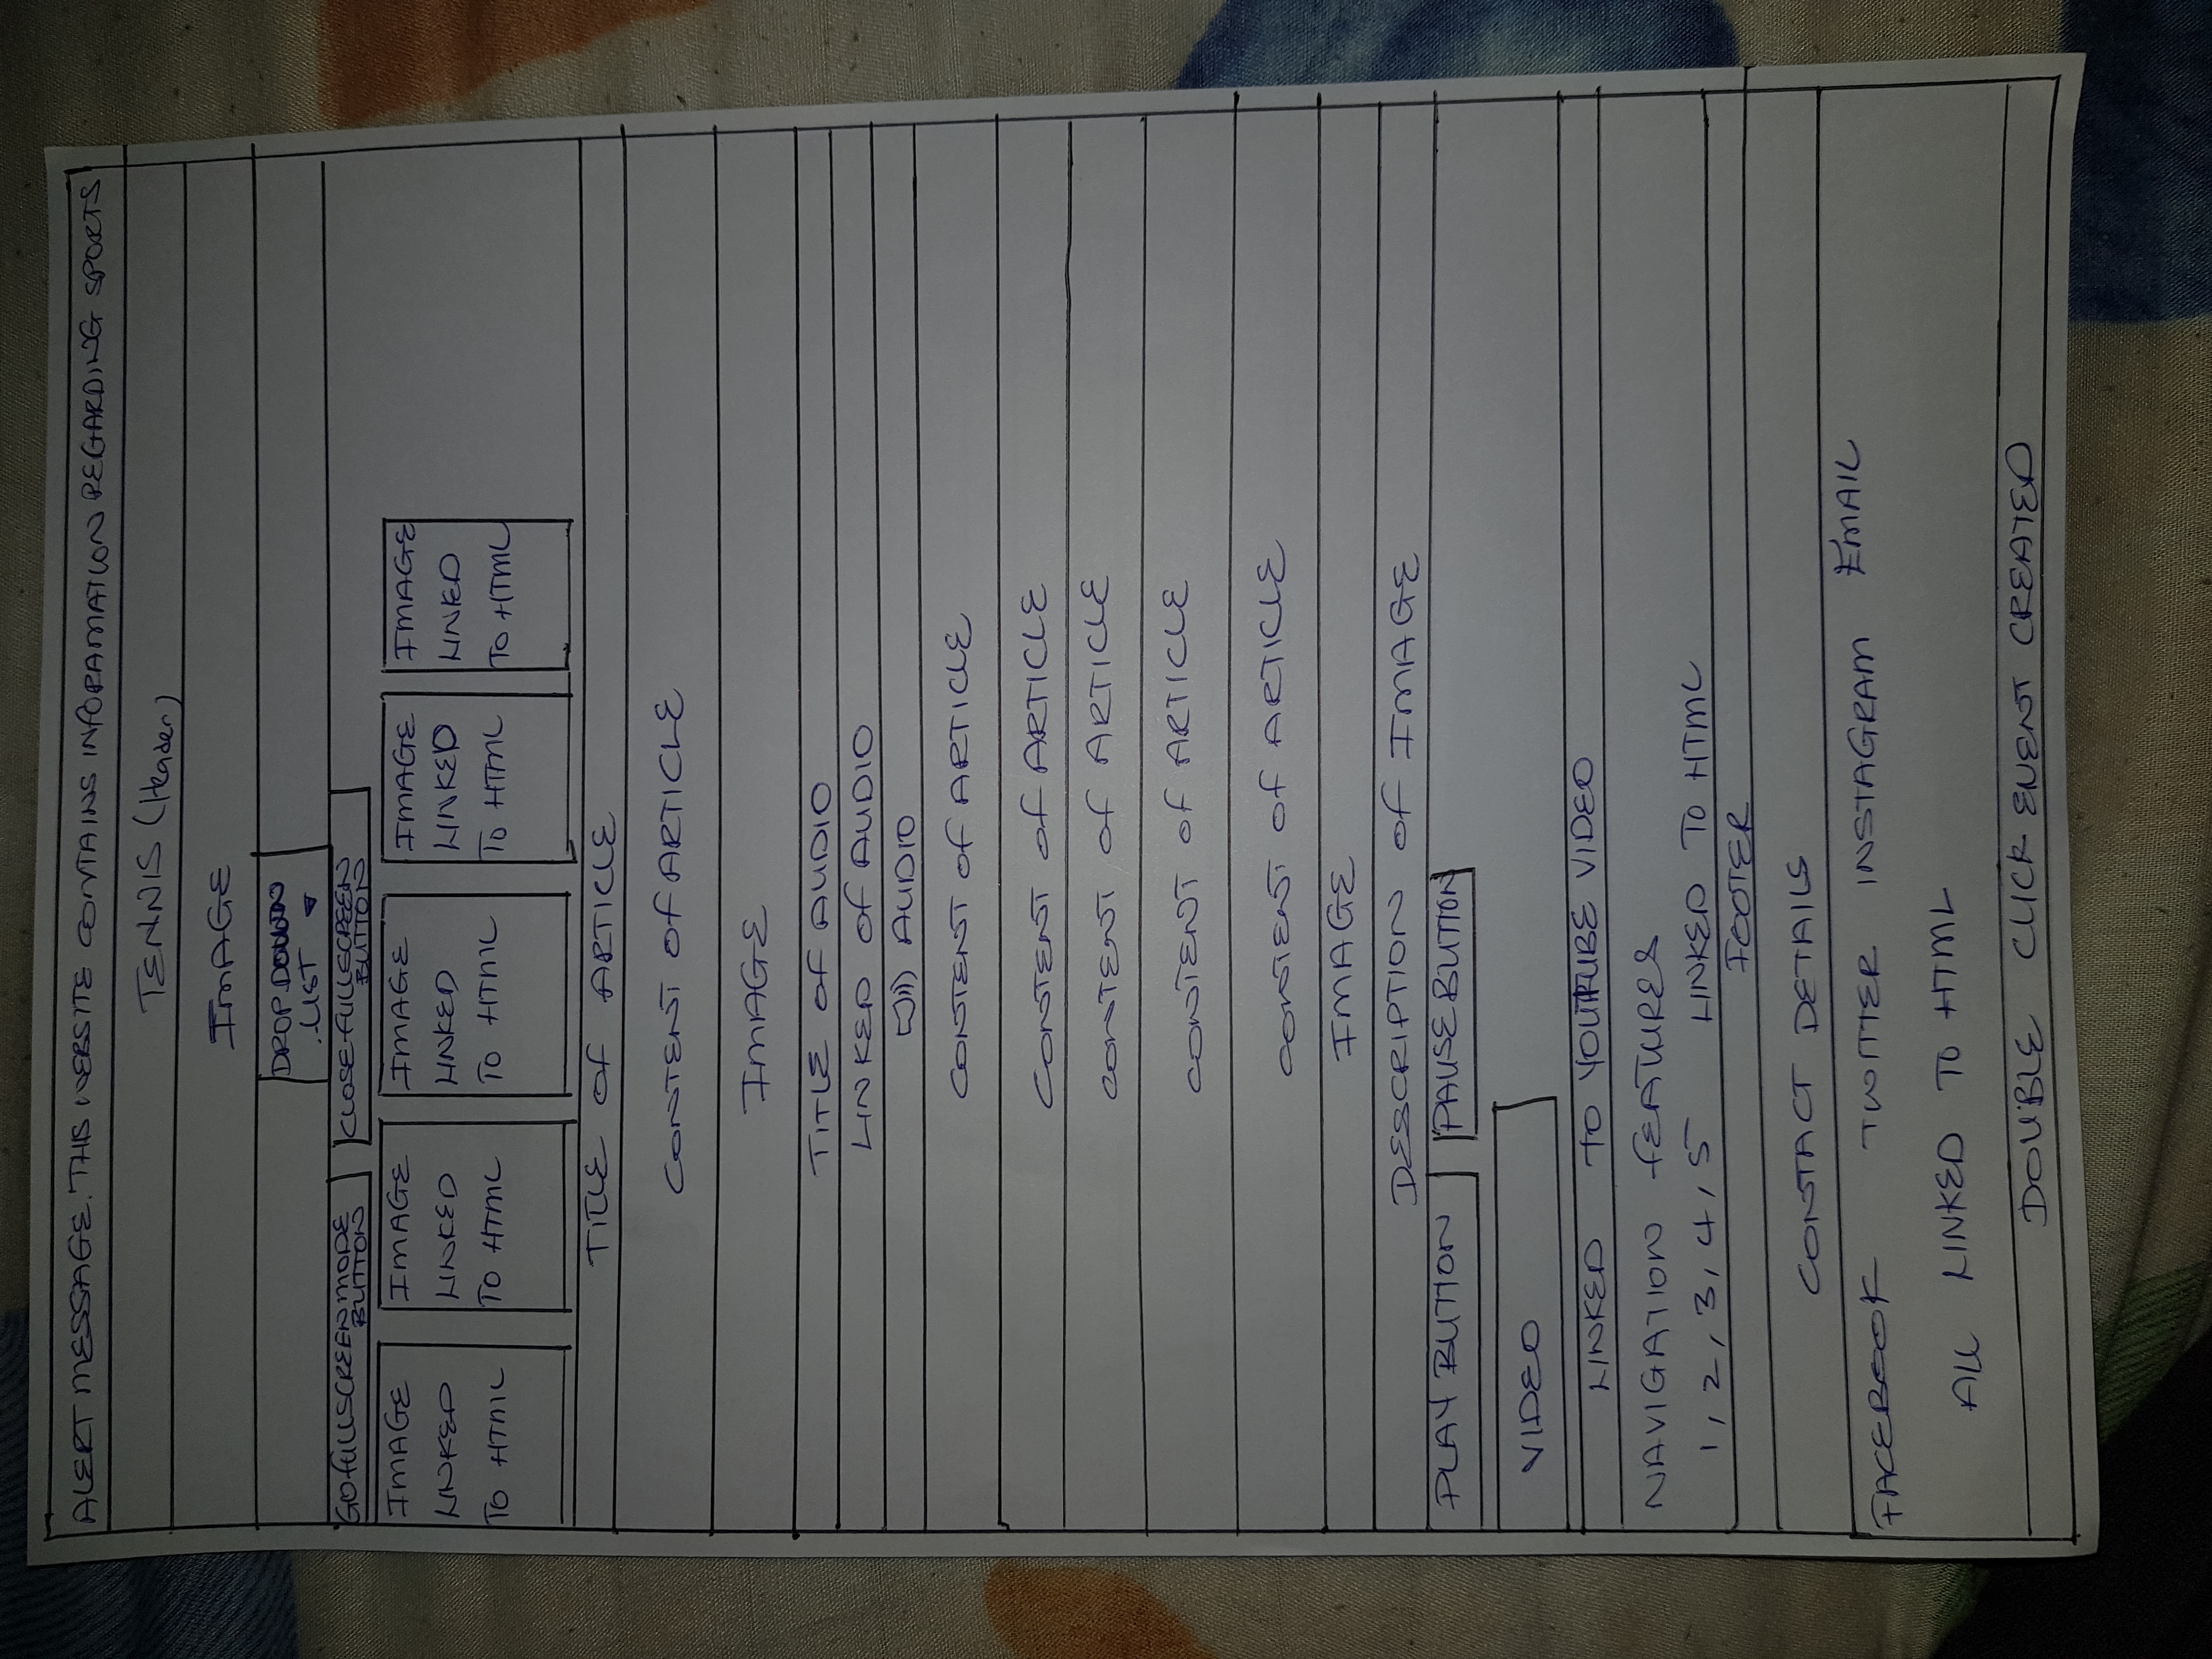 ALERT MESSAGE. THIS WEBSITE CONTAINS INFORAMATION REGARDING SPORTS
TENNIS (Header)
IMAGE
DROP DOWN
LIST
GO FULLSCREEN MODE
BUTTON
CLOSE FULLSCREEN
BUTTON
IMAGE
LINKED
TO HTML
IMAGE
LINKED
TO HTML
IMAGE
LINKED
TO HTML
IMAGE
LINKED
TO HTML
IMAGE
LINKED
TO HTML
TITLE OF ARTICLE
CONTENT OF ARTICLE
IMAGE
TITLE OF AUDIO
LINKED OF AUDIO
AUDIO
CONTENT OF ARTICLE
CONTENT OF ARTICLE
CONTENT OF ARTICLE
CONTENT OF ARTICLE
CONTENT OF ARTICLE
IMAGE
DESCRIPTION OF IMAGE
PLAY BUTTON PAUSE BUTTON
VIDEO
LINKED TO YOUTUBE VIDEO
NAVIGATION FEATURES
1, 2, 3, 4, 5 LINKED TO HTML
FOOTER
CONTACT DETAILS
FACEBOOK TWITTER INSTAGRAM EMAIL
ALL LINKED TO HTML
DOUBLE CLICK EVENT CREATED